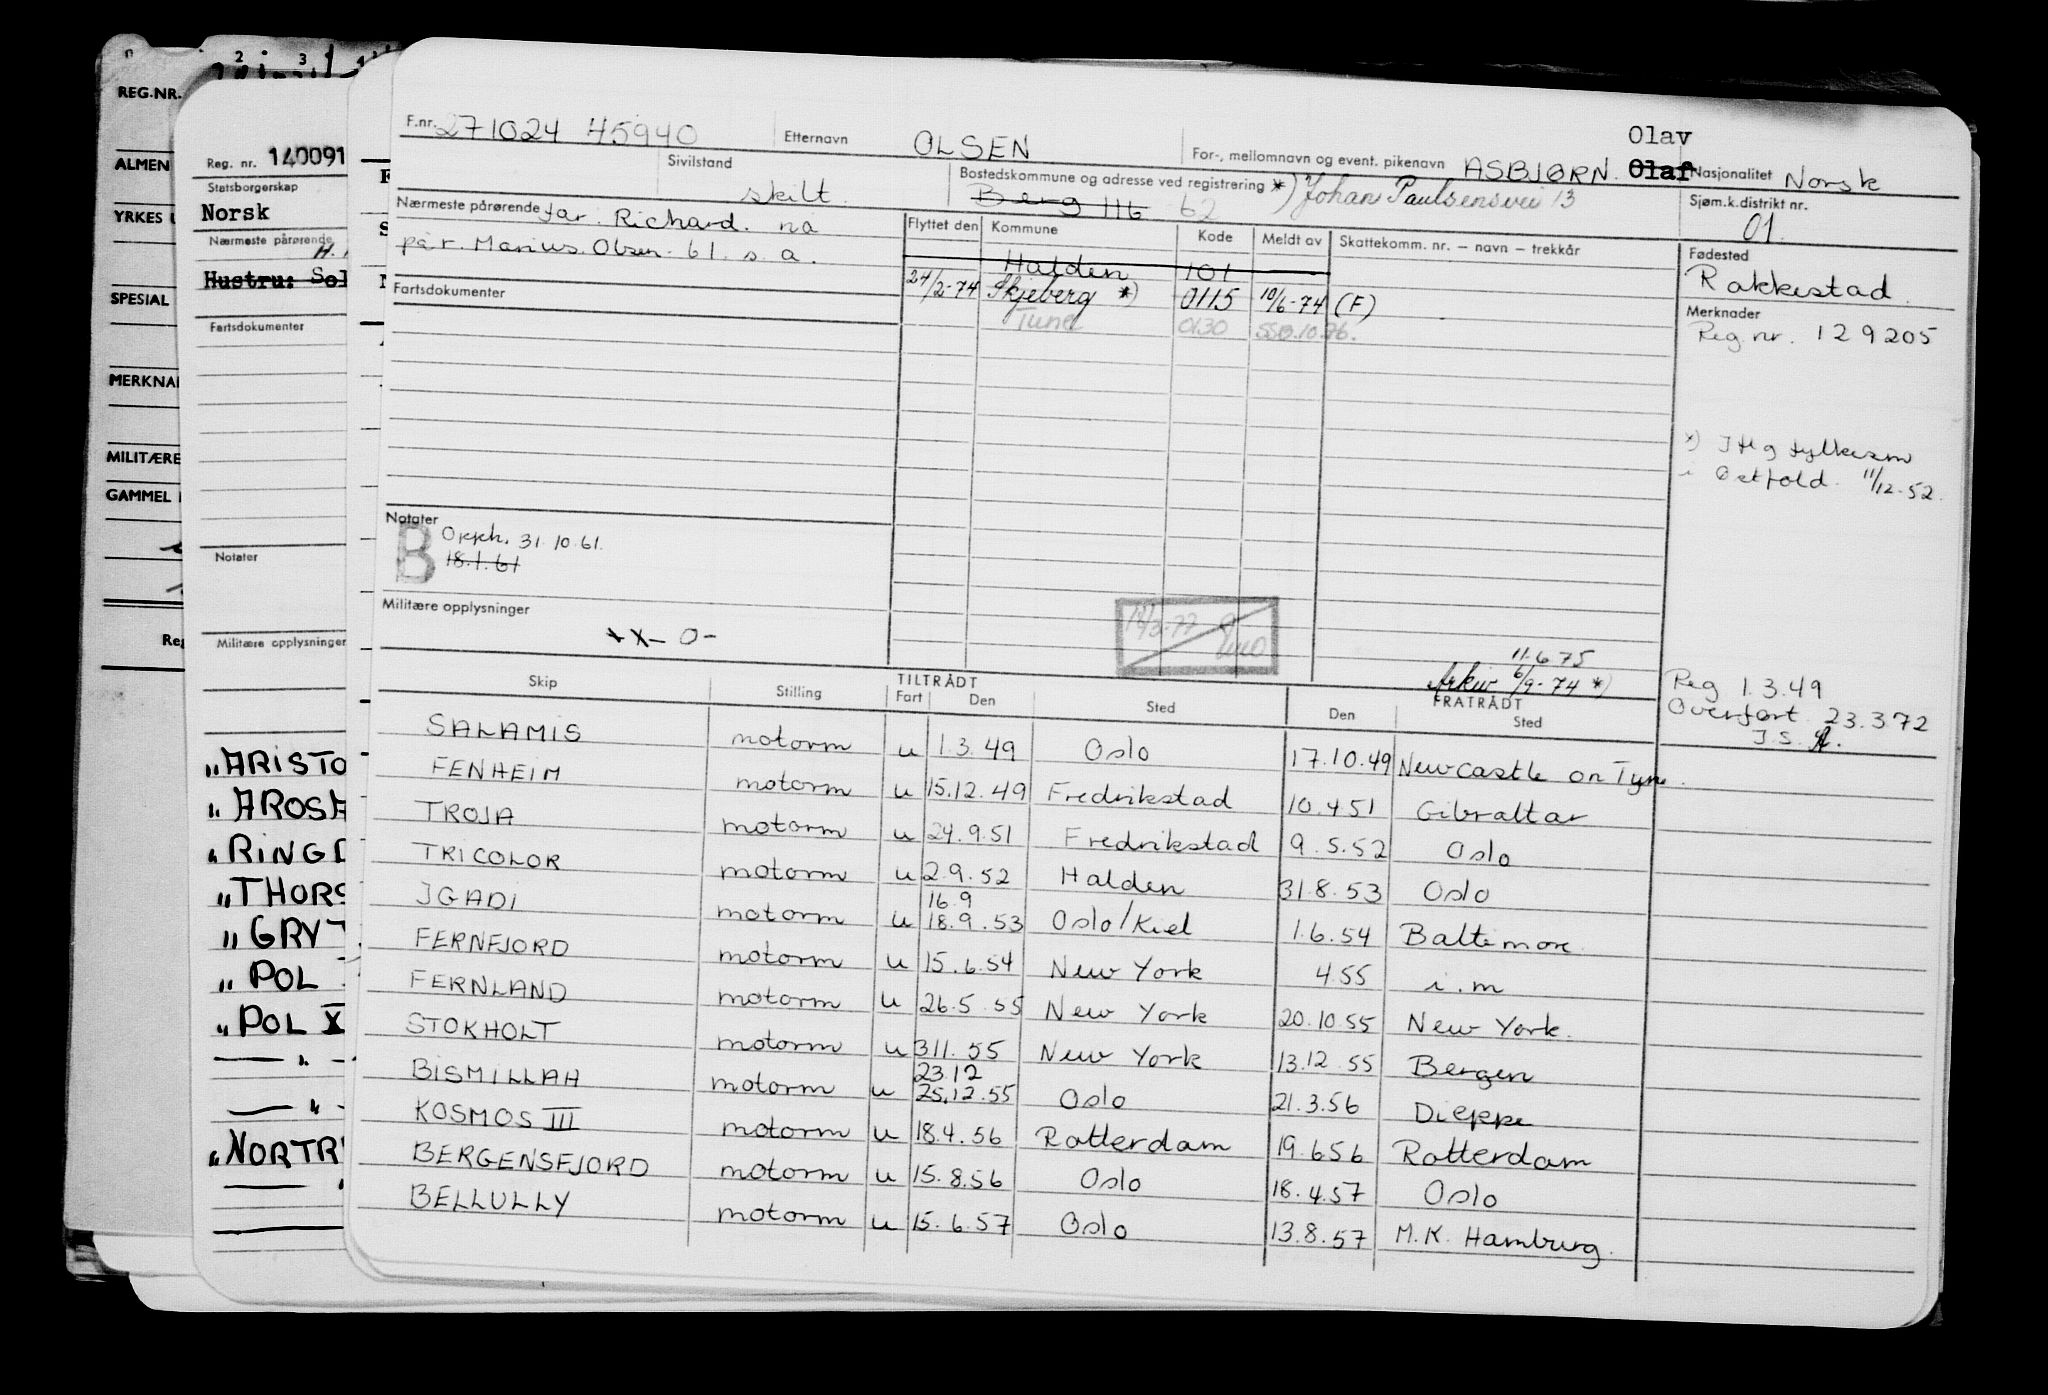 2 3
REG.NR.
ALMEN
YRKES
SPESIAL
MERKNA
MILITÆRE
GAMMEL
Reg
Reg. nr. 140091
Statsborgerskap
Norsk
Nærmeste pårørende
H.
Hustru: Sol
Fartsdokumenter
Notater
Militære opplysninger
"ARISTO
"AROSA
"RINGD
"THORS
"GRYT
"POL
"POL X
"NORTR
F.nr. 271024 45940 Etternavn OLSEN For-, mellomnavn og event. pikenavn ASBJØRN Olaf Olav Nasjonalitet Norsk
Sivilstand skilt. Bostedskommune og adresse ved registrering *) Johan Paulsensvei 13
Berg 116 62
Sjøm.k.distrikt nr. 01
Nærmeste pårørende far. Richard. na
på r. Marius Olsen 61. s. a.
Flyttet den Kommune Kode Meldt av Skattekomm. nr. – navn – trekkår
Halden 101
24/2-74 Skjeberg *) 0115 10/6-74 (F)
Tune 0130
Fødested
Rakkestad.
Merknader
Reg nr. 129205
i Østfold. 11/12.52.
Fartsdokumenter
Notater
B Opph. 31.10.61.
18.1.61
Militære opplysninger
-0-
11.6.75
Arkiv 6/9-74 *)
Reg 1.3.49
Overført 23.3.72
J.S.
Skip Stilling TILTRÅDT Fart Den Sted FRATRÅDT Den Sted
SALAMIS motorm u 1.3.49 Oslo 17.10.49 Newcastle on Tyne.
FENHEIM motorm u 15.12.49 Fredrikstad 10.4.51 Gibraltar
TROJA motorm u 24.9.51 Fredrikstad 9.5.52 Oslo
TRICOLOR motorm u 2.9.52 Halden 31.8.53 Oslo
IGADI motorm u 16.9 18.9.53 Oslo/Kiel 1.6.54 Baltimore
FERNFJORD motorm u 15.6.54 New York 4.55 i.m
FERNLAND motorm u 26.5.55 New York 20.10.55 New York.
STOKHOLT motorm u 3.11.55 New York 13.12.55 Bergen
BISMILLAH motorm u 23.12 25.12.55 Oslo 21.3.56 Dieppe
KOSMOS III motorm u 18.4.56 Rotterdam 19.6.56 Rotterdam
BERGENSFJORD motorm u 15.8.56 Oslo 18.4.57 Oslo
BELLULLY motorm u 15.6.57 Oslo 13.8.57 M.K. Hamburg.